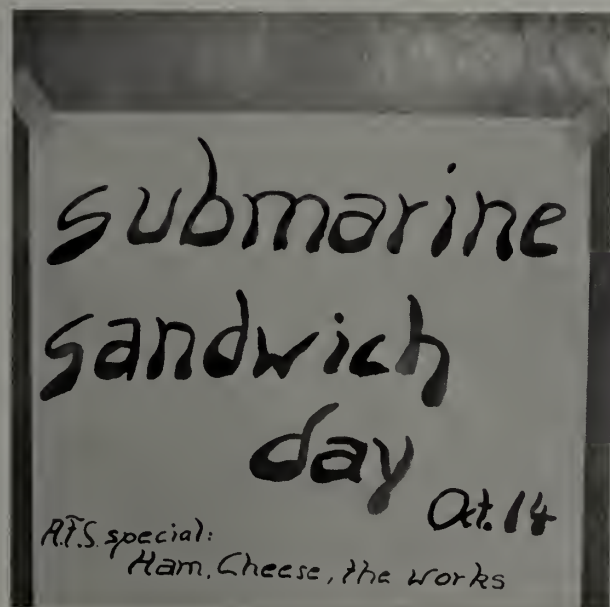 submarine
sandwich
day
Oct. 14
A.F.S. special:
Ham, Cheese, the works